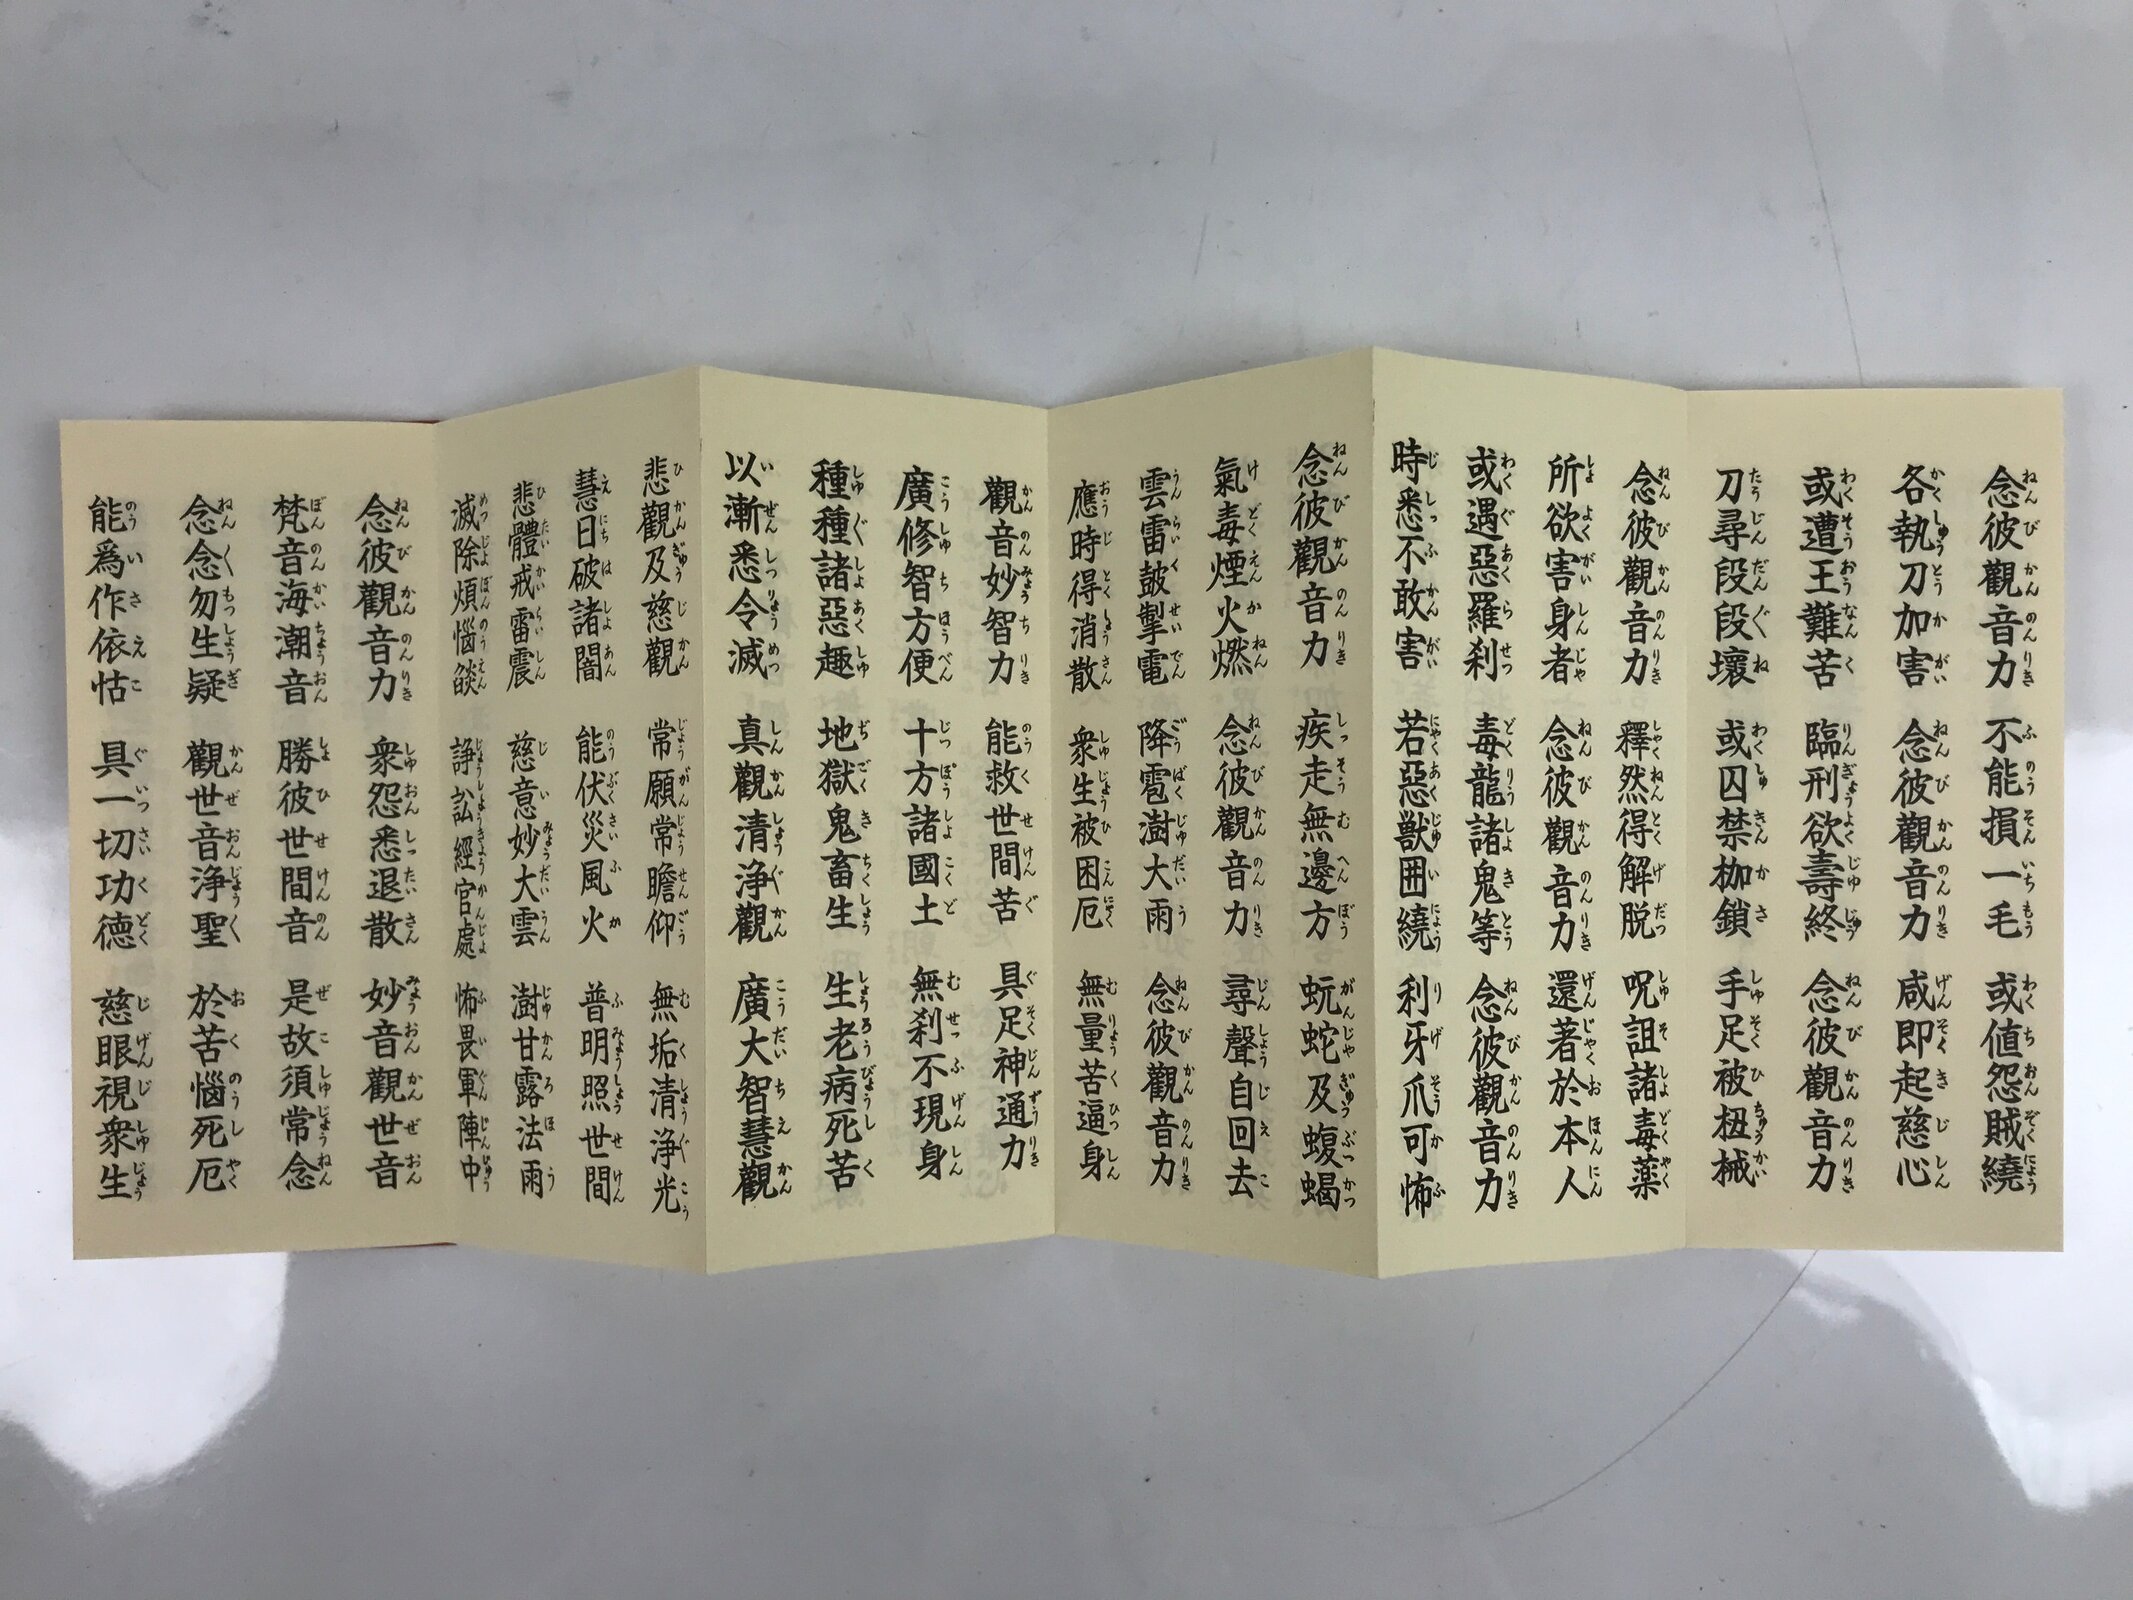 念彼觀音力 不能損一毛 或値怨賊繞
各執刀加害 念彼觀音力 咸即起慈心
或遭王難苦 臨刑欲壽終 念彼觀音力
刀尋段段壞 或囚禁枷鎖 手足被杻械
念彼觀音力 釋然得解脱 呪詛諸毒薬
所欲害身者 念彼觀音力 還著於本人
或遇惡羅刹 毒龍諸鬼等 念彼觀音力
時悉不敢害 若惡獣囲繞 利牙爪可怖
念彼觀音力 疾走無邊方 蚖蛇及蝮蝎
氣毒煙火燃 念彼觀音力 尋聲自回去
雲雷鼓掣電 降雹澍大雨 念彼觀音力
應時得消散 衆生被困厄 無量苦逼身
觀音妙智力 能救世間苦 具足神通力
廣修智方便 十方諸國土 無刹不現身
種種諸惡趣 地獄鬼畜生 生老病死苦
以漸悉令滅 真觀清浄觀 廣大智慧觀
悲觀及慈觀 常願常瞻仰 無垢清浄光
慧日破諸闇 能伏災風火 普明照世間
悲體戒雷震 慈意妙大雲 澍甘露法雨
滅除煩惱燄 諍訟經官處 怖畏軍陣中
念彼觀音力 衆怨悉退散 妙音觀世音
梵音海潮音 勝彼世間音 是故須常念
念念勿生疑 觀世音浄聖 於苦惱死厄
能爲作依怙 具一切功徳 慈眼視衆生